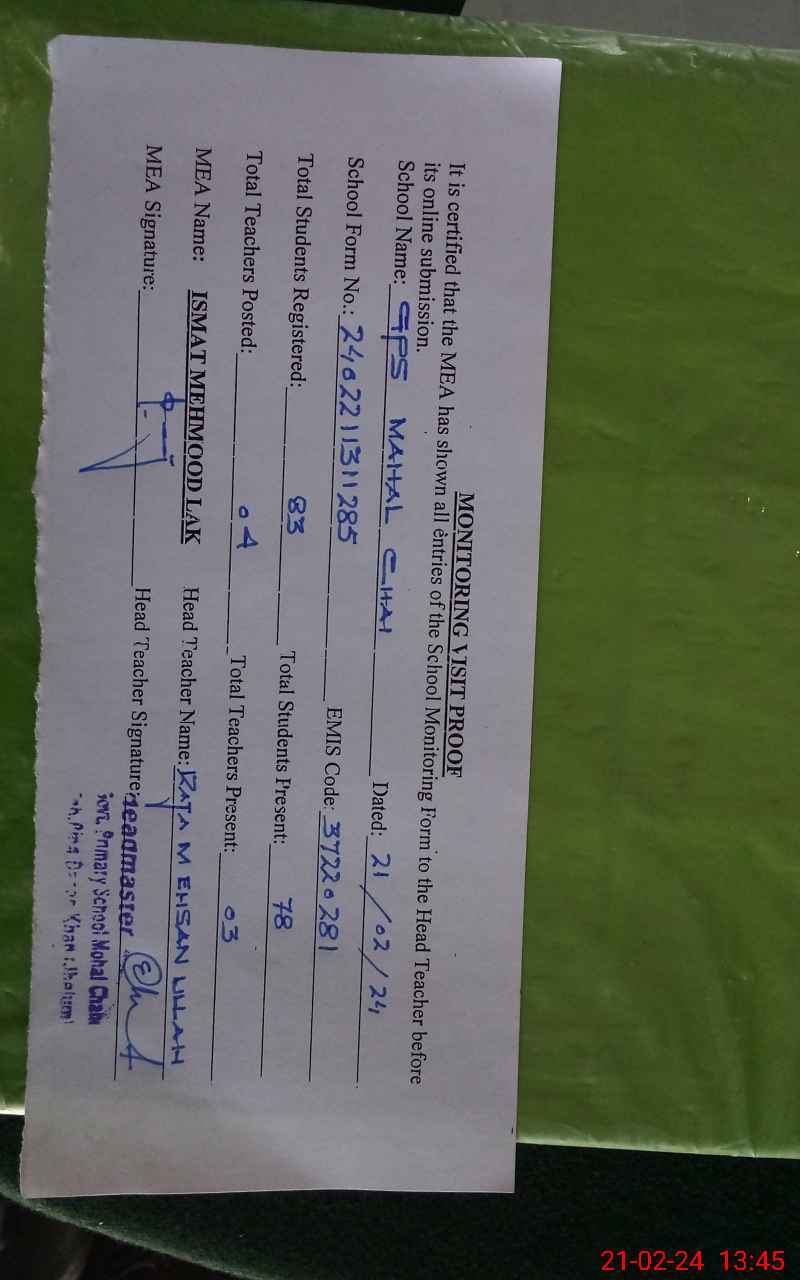 MONITORING VISIT PROOF
It is certified that the MEA has shown all entries of the School Monitoring Form to the Head Teacher before
its online submission.
School Name: GPS MAHAL CHAI Dated: 21/02/24
School Form No.: 240221131​1285 EMIS Code: 37220281
Total Students Registered: 83 Total Students Present: 78
Total Teachers Posted: 04 Total Teachers Present: 03
MEA Name: ISMAT MEHMOOD LAK Head Teacher Name: RAJA M EHSAN ULLAH
MEA Signature: Head Teacher Signature:
Headmaster
Govt. Primary School Mohal Chabi
Khan
21-02-24 13:45